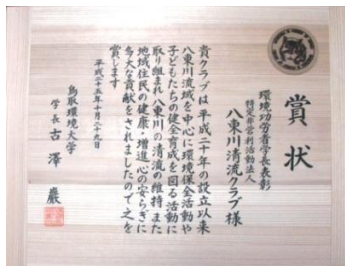 賞状
環境功労者学長表彰
特定非営利活動法人
八東川清流クラブ様
貴クラブは平成二十年の設立以来
八東川流域を中心に環境保全活動や
子どもたちの健全育成を図る活動に
取り組まれ八東川の清流の維持また
地域住民の健康増進心の安らぎに
多大な貢献をされましたので之を
賞します
平成二十五年十月二十九日
鳥取環境大学
学長 古澤 巖